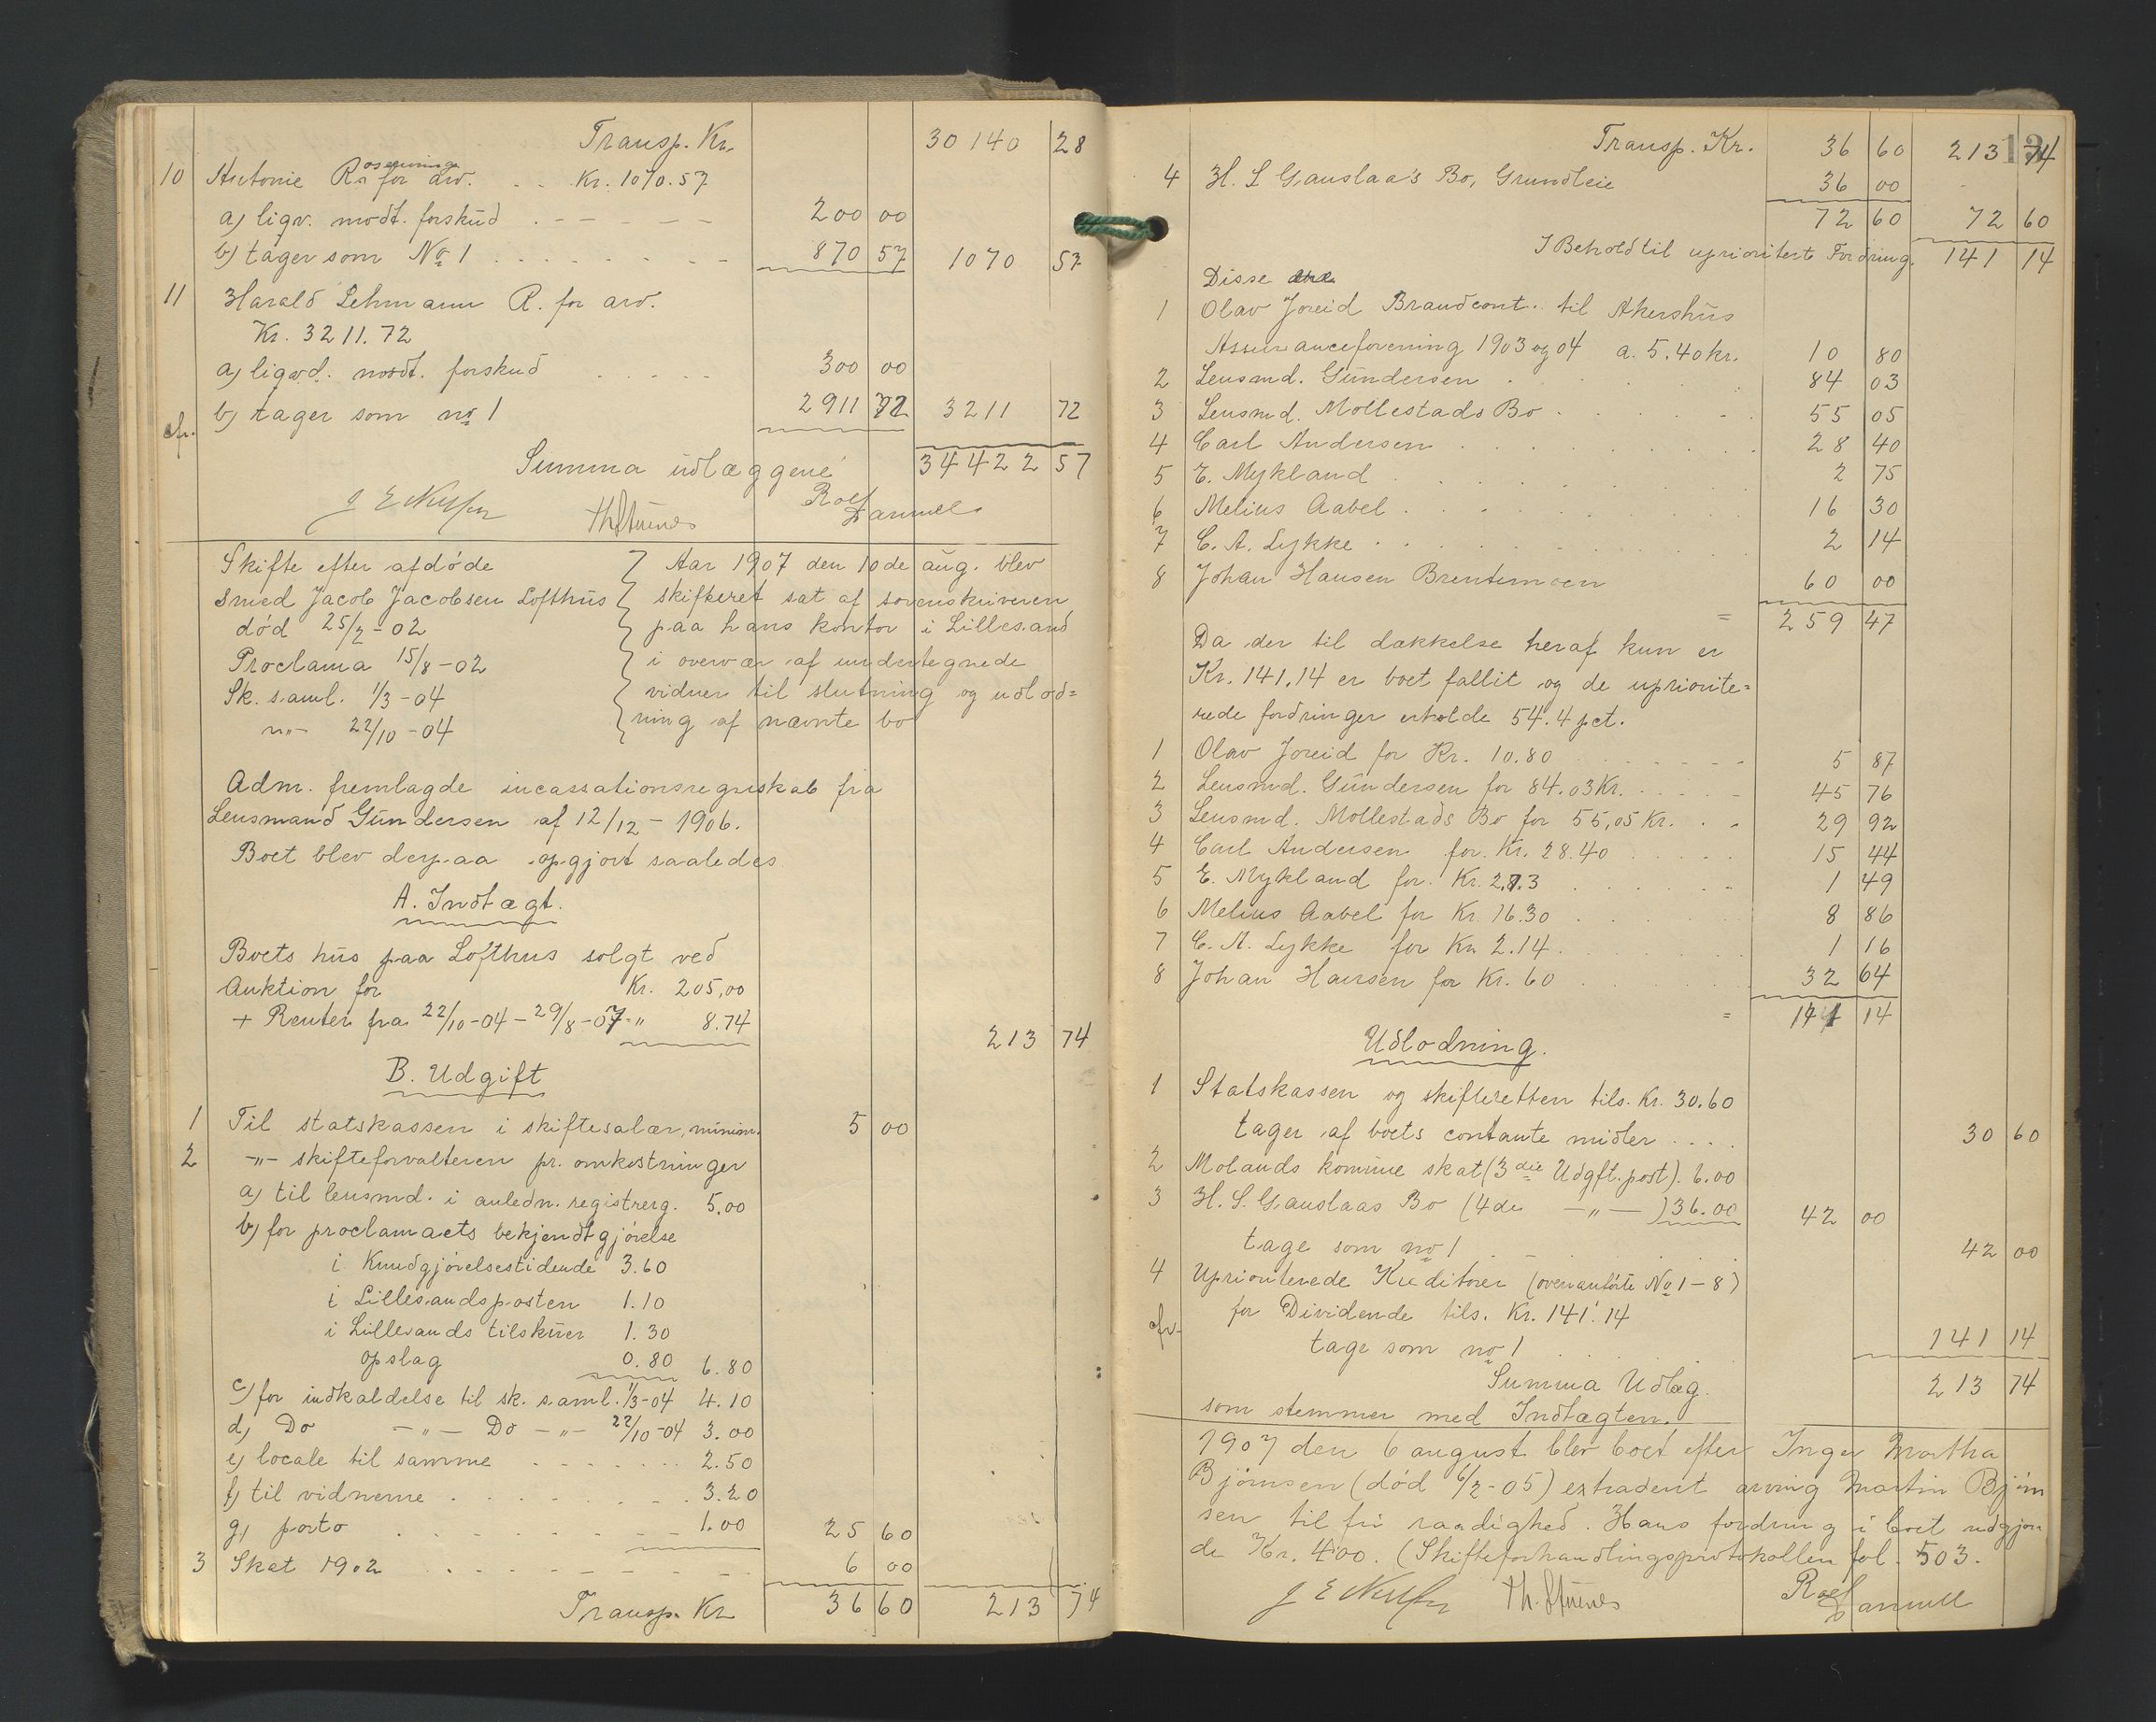 Transp. Kr. 30 140 28
10 Antonie Roseninge for arv. . . Kr. 1070.57
a) liqv. modt. forskud . - - - - 200 00
b) tager som No 1 . . . . . . . . 870 57 1070 57
11 Harald Lehmann R. for arv.
Kr. 3211.72
a) liqvd. modt. forskud . . . . . 300 00
b) tager som no 1 2911 72 3211 72
cfr.
Summa udlæggene 34422 57
Skifte efter afdøde
smed Jacob Jacobsen Lofthus
død 25/2 - 02
Proclama 15/8 - 02
Sk. saml. 1/3 - 04
-"- 22/10 - 04
Aar 1907 den 10de aug. blev
skifteret sat af sorenskriveren
paa hans kontor i Lillesand
i overvær af undertegnede
vidner til slutning og udlod=
ning af nævnte bo
Adm. fremlagde incassationsregnskab fra
Lensmand Gundersen af 12/12 - 1906.
Boet blev derpaa opgjort saaledes
A. Indtægt.
Boets hus paa Lofthus solgt ved
Auktion for Kr. 205,00
+ Renter fra 22/10-04 - 29/8-07 - " 8.74
213 74
B. Udgift
1 Til statskassen i skiftesalær, minim. 5 00
2 -"- skifteforvalteren pr. omkostninger
a) til lensmd. i anledn. registrerg. 5.00
b) for proclamaets bekjendtgjørelse
i Kundgjørelsestidende 3.60
i Lillesandsposten 1.10
i Lillesands tilskuer 1.30
opslag 0.80 6.80
c) for indkaldelse til sk. saml. 1/3-04 4.10
d) Do -"- Do -"- 22/10-04 3.00
e) locale til samme . . . . . . . 2.50
f) til vidnerne . . . . . . . . 3.20
g) porto . . . . . . . . 1.00 25 60
3 Skat 1902 . . . . . . . . 6 00
Transp. Kr 36 60 213 74
Transp. Kr. 36 60 213 74
4 H. S Gauslaa's Bo, Grundleie 36 00
72 60 72 60
I Behold til uprioritert Fordring. 141 14
Disse
1 Olav Joreid Brandcont. til Akershus
Assuranceforening 1903 og 04 a. 5.40 kr. 10 80
2 Lensmd. Gundersen . . . . . 84 03
3 Lensmd. Mollestads Bo . . . . . 55 05
4 Carl Andersen . . . . . . . 28 40
5 E. Mykland . . . . . . . 2 75
6 Melius Aabel . . . . . . . 16 30
7 C. A. Lykke . . . . . . . 2 14
8 Johan Hansen Brentemoen 60 00
= 259 47
Da der til dækkelse heraf kun er
Kr. 141.14 er boet fallit og de upriorite=
rede fordringer erholde 54.4 pct.
1 Olav Joreid for Kr. 10.80 . . . . . 5 87
2 Lensmd. Gundersen for 84.03 Kr. . . . . 45 76
3 Lensmd. Mollestads Bo for 55,05 Kr. . . 29 92
4 Carl Andersen for Kr. 28.40 . . . . . 15 44
5 E. Mykland for Kr. 2.73 . . . . . 1 49
6 Melius Aabel for Kr. 16.30 . . . . . 8 86
7 C. A. Lykke for Kr 2.14 . . . . . 1 16
8 Johan Hansen for Kr. 60 . . . . . 32 64
= 141 14
Udlodning.
1 Statskassen og skifteretten tils. Kr. 30.60
tager af boets contante midler . . . . 30 60
2 Molands komune skat (3die Udgft. post). 6.00
3 H. S. Gauslaas Bo (4de -"-) 36.00 42 00
tage som no 1 . . . . . . 42 00
4 Uprioriterede Kreditorer (ovenanførte No 1 - 8)
for Dividende tils. Kr. 141.14
cfr. tage som no 1 . . . . . 141 14
Summa Udlæg. 213 74
som stemmer med Indtægten.
1907 den 6 august blev boet efter Inger Martha
Bjørnsen (død 6/2-05) extradert arving Martin Bjørn
sen til fri raadighed. Hans fordring i boet udgjor
de Kr. 400. (Skifteforhandlingsprotokollen fol. 503.